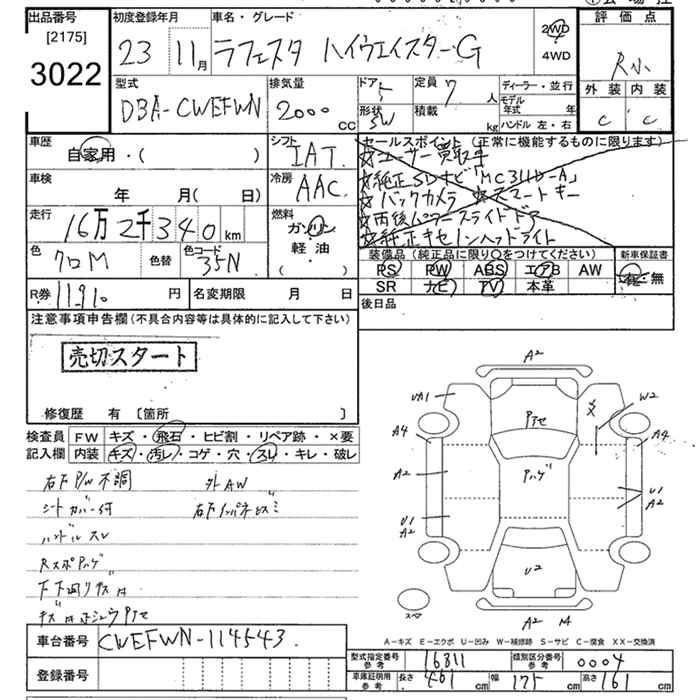 出品番号
[2175]
3022
初度登録年月
23 11月
車名・グレード
ラフェスタ ハイウェイスターG
2WD
4WD
評価点
R小
外装 内装
C C
型式
DBA-CWEFWN
排気量
2000 cc
ドア 5
形状 SW
定員 7 人
積載 kg
ディーラー・並行
モデル年式 年
ハンドル 左・右
車歴
自家用・( )
シフト
IAT
車検
年 月( 日)
冷房
AAC
走行
16万2千340km
燃料
ガソリン
軽・油
( )
色
クロM
色替
色コード
35N
セールスポイント (正常に機能するものに限ります)
☆ユーザー買取車
☆純正SDナビ「MC311D-A」
☆バックカメラ ☆スマートキー
☆両後パワースライドドア
☆純正キセノンヘッドライト
装備品 (純正品に限り○をつけてください)
PS PW ABS エアB AW
SR ナビ TV 本革
新車保証書
有・無
R券 11,910 円
名変期限 月 日
後日品
注意事項申告欄(不具合内容等は具体的に記入して下さい)
売切スタート
修復歴 有 [箇所 ]
検査員記入欄
FW キズ・飛石・ヒビ割・リペア跡・×要
内装 キズ・汚レ・コゲ・穴・スレ・キレ・破レ
右下P/W不調 外AW
シートカバー付
ハンドルスレ
下下回りサス
車台番号
CWEFWN-114543
登録番号
A2
UA1
W2
A4
A4
A2
U1
A2
U1
A2
U2
A2
スペア
A-キズ E-エクボ U-凹み W-補修跡 S-サビ C-腐食 XX-交換済
型式指定番号 参考 16811
類別区分番号 参考 0004
車庫証明用 参考 長さ 461 cm 幅 175 cm 高さ 161 cm